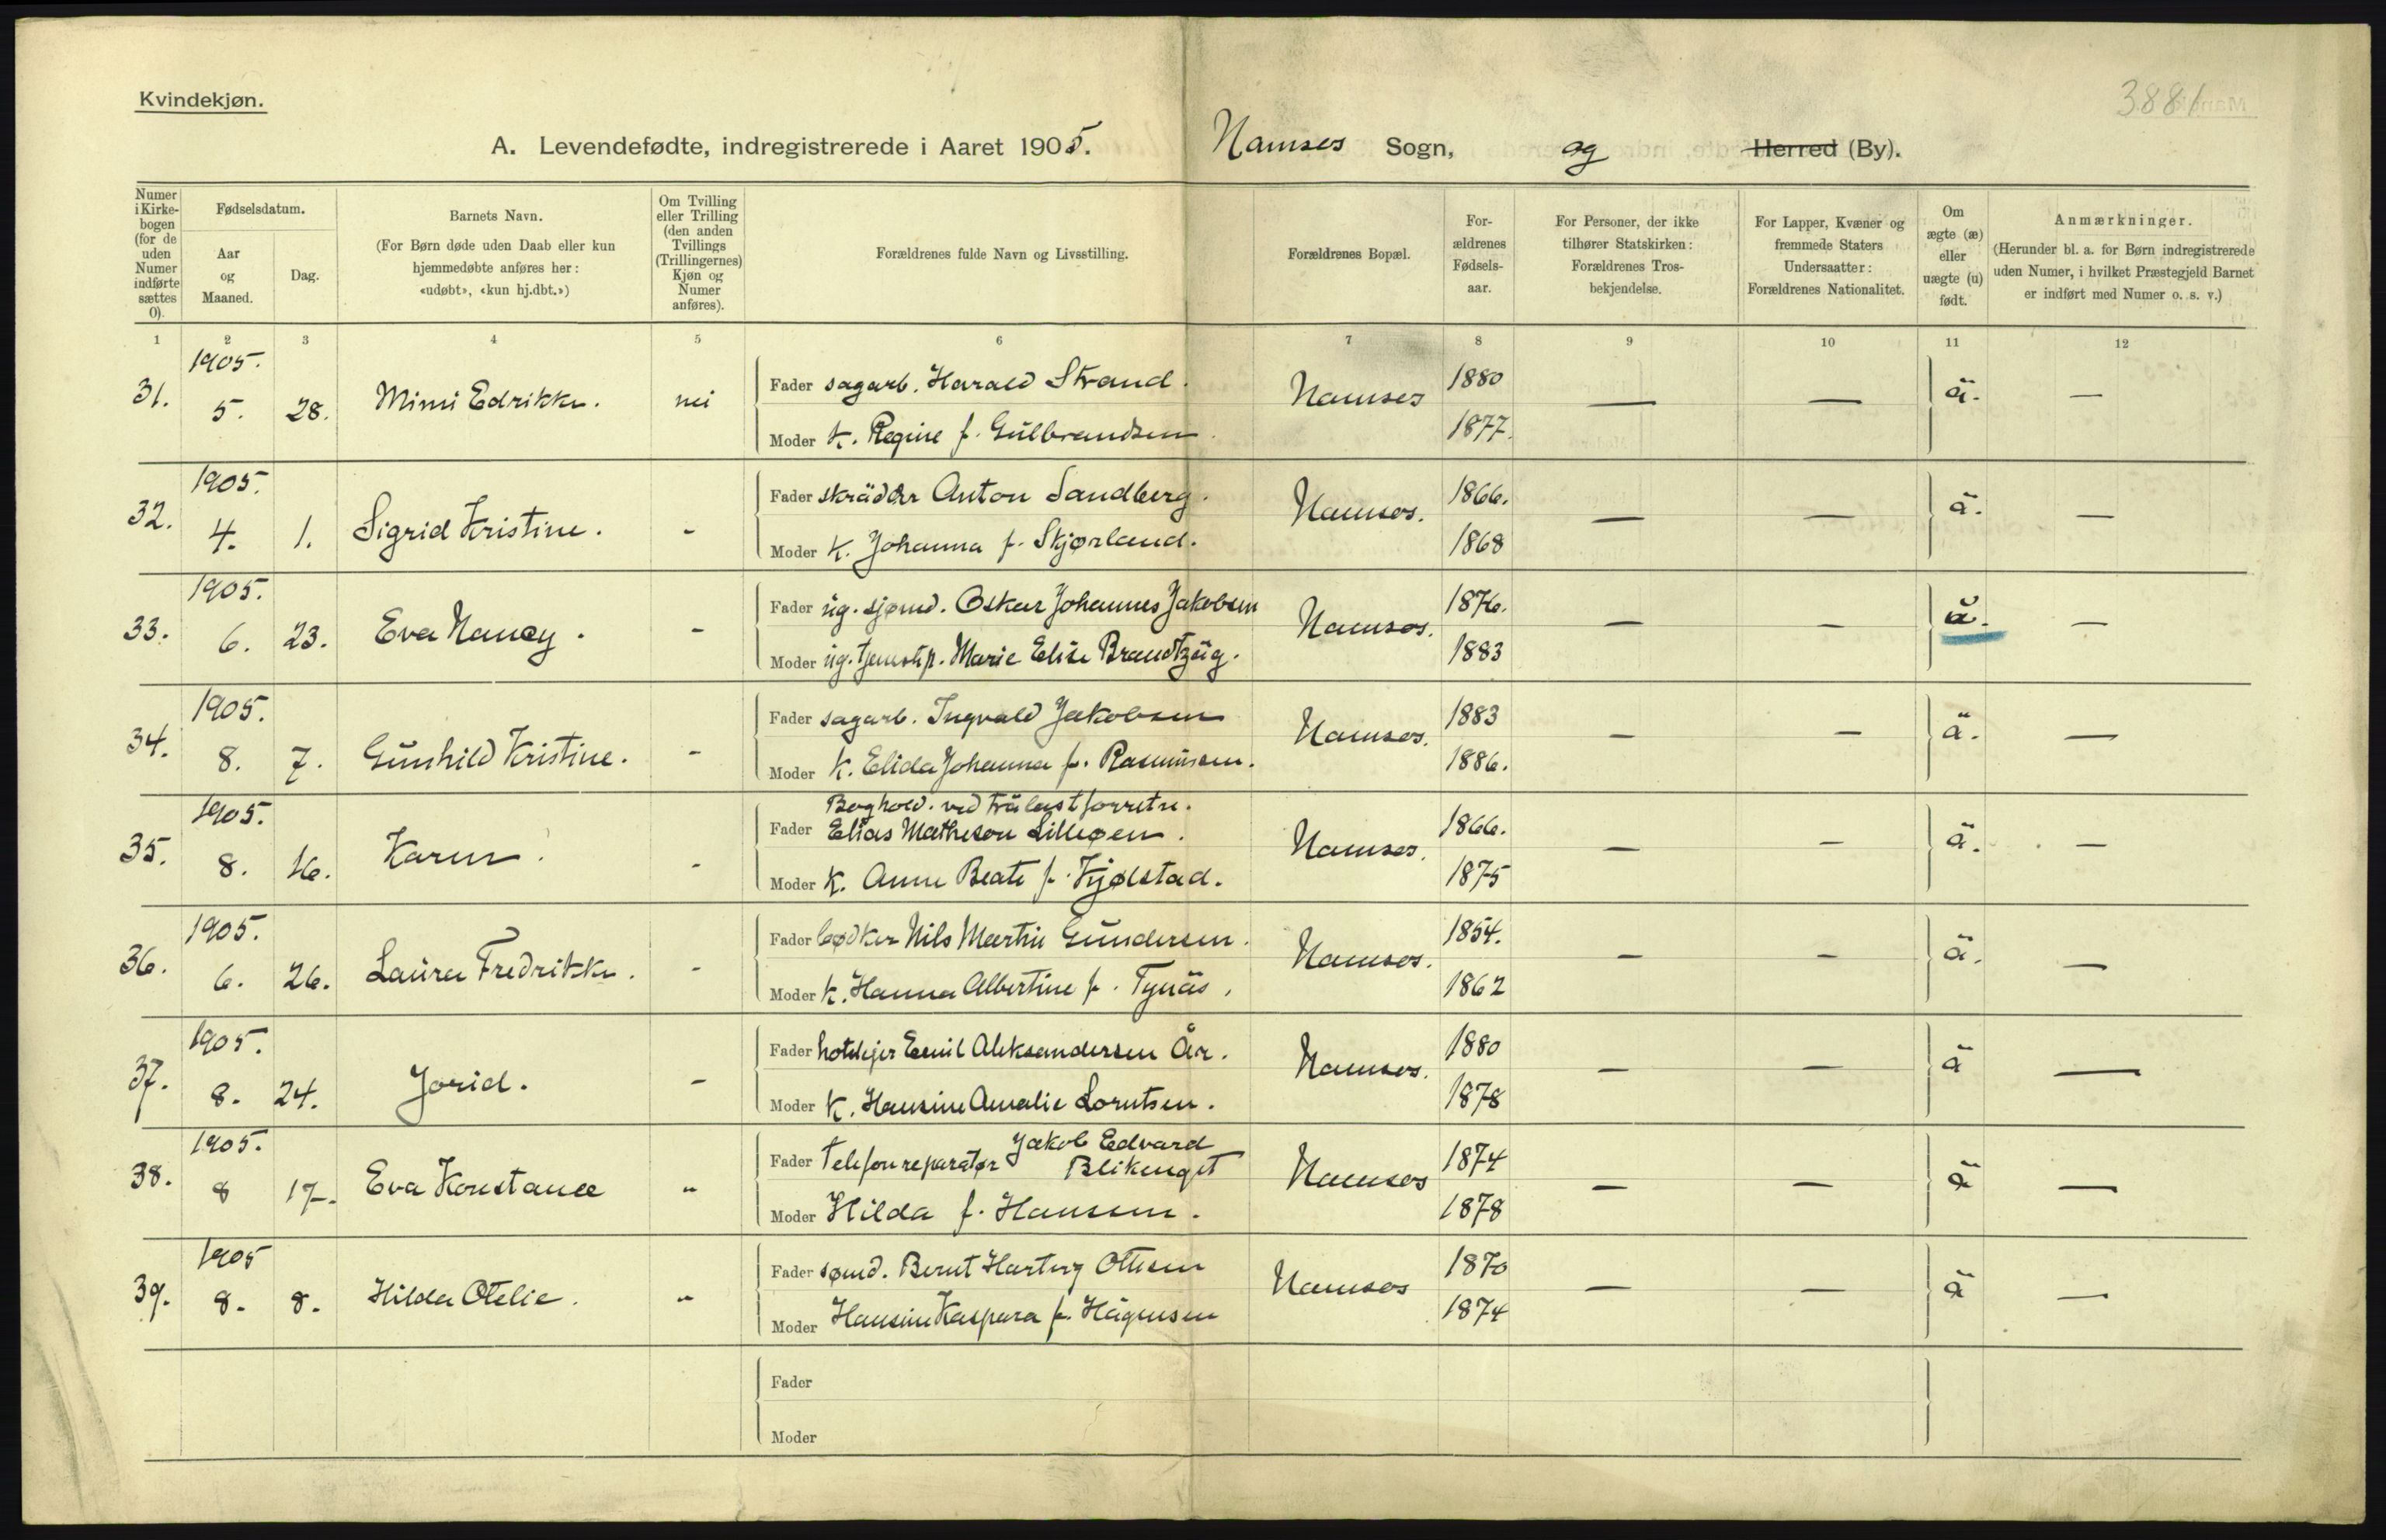 3881
Kvindekjøn.
A. Levendefødte, indregistrerede i Aaret 1905. Namsos Sogn, og Herred (By).
Numer i Kirke-bogen (for de uden Numer indførte sættes 0).
Fødselsdatum.
Aar og Maaned.
Dag.
Barnets Navn.
(For Børn døde uden Daab eller kun hjemmedøbte anføres her: «udøbt», «kun hj.dbt.»)
Om Tvilling eller Trilling (den anden Tvillings (Trillingernes) Kjøn og Numer anføres).
Forældrenes fulde Navn og Livsstilling.
Forældrenes Bopæl.
For-ældrenes Fødsels-aar.
For Personer, der ikke tilhører Statskirken: Forældrenes Tros-bekjendelse.
For Lapper, Kvæner og fremmede Staters Undersaatter: Forældrenes Nationalitet.
Om ægte (æ) eller uægte (u) født.
Anmærkninger.
(Herunder bl. a. for Børn indregistrerede uden Numer, i hvilket Præstegjeld Barnet er indført med Numer o. s. v.)
1 2 3 4 5 6 7 8 9 10 11 12
31. 1905. 5. 28. Mimi Edrikke. nei Fader sagarb. Harald Strand. Namsos 1880 — — ä. —
Moder k. Regine f. Gulbrandsen. 1877.
32. 1905. 4. 1. Sigrid Kristine. - Fader skrädder Anton Sandberg. Namsos. 1866. — — ä. —
Moder k. Johanna f. Skjørland. 1868
33. 1905. 6. 23. Eva Nancy. - Fader ug. sjømd. Oskar Johannes Jakobsen Namsos. 1876. — — ŭ. —
Moder ug. tjenestp. Marie Elise Brandtzäg. 1883
34. 1905. 8. 7. Gunhild Kristine. - Fader sagarb. Ingvald Jakobsen Namsos. 1883 — — ä. —
Moder k. Elida Johanna f. Rasmussen. 1886.
35. 1905. 8. 16. Karen. - Boghold. ved trälastforretn.
Fader Elias Matheson Lilleøen. Namsos. 1866. — — ä. —
Moder k. Anne Beate f. Kjølstad. 1875
36. 1905. 6. 26. Laura Fredrikke. - Fader bødker Nils Martin Gundersen. Namsos. 1854. — — ä. —
Moder k. Hanna Albertine f. Tynäs. 1862
37. 1905. 8. 24. Jorid. - Fader hotelejer Emil Aleksandersen År. Namsos. 1880 — — ä —
Moder k. Hansine Amalie Lorntsen. 1878
38. 1905. 8 17. Eva Konstance - Jakob Edvard
Fader Telefonreparatør Blikenget Namsos 1874 — — ä —
Moder Hilda f. Hansen. 1878
39. 1905 8. 8. Hilda Otelie. - Fader sømd. Bernt Hartvig Ottesen Namsos 1870 — — ä —
Moder Hansine Kaspara f. Hågensen 1874
Fader
Moder